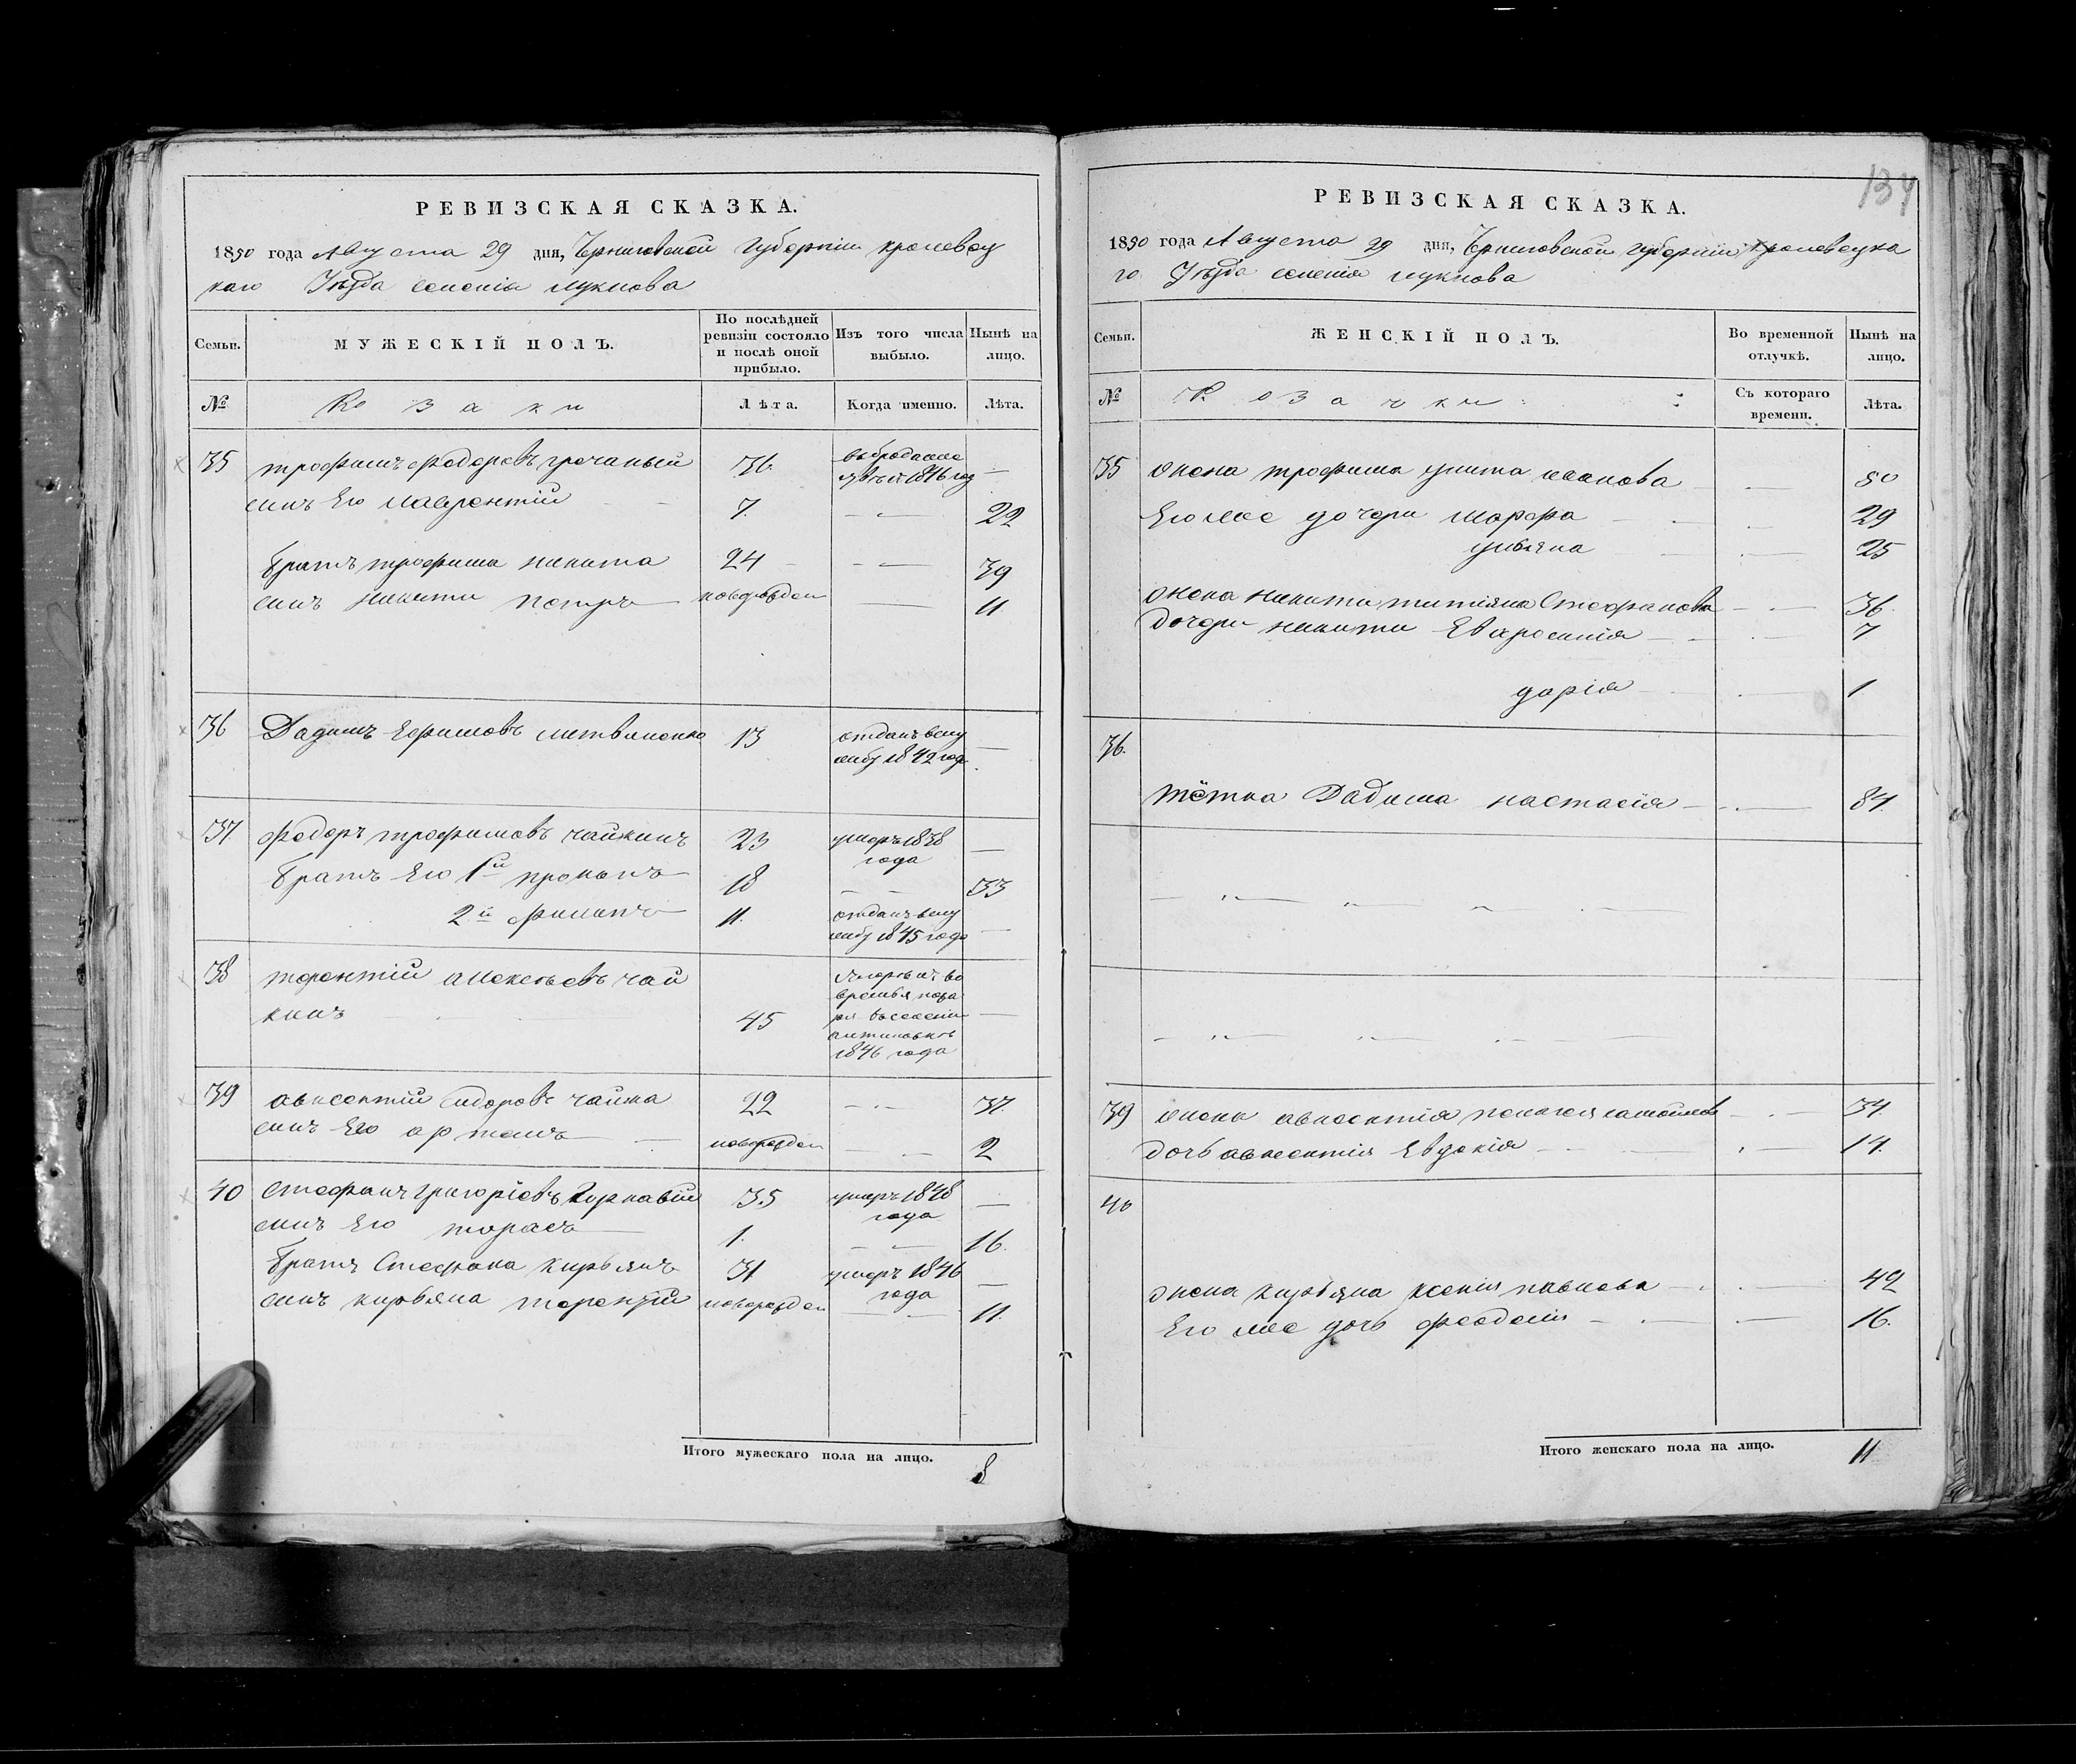 РЕВИЗСКАЯ СКАЗКА.
1850 года Августа 29 дня, Черниговской Губерніи Кролевец
каго Уезда селенія Лукнова
Семьи. МУЖЕСКІЙ ПОЛЪ. По послѣдней ревизіи состояло и послѣ оной прибыло. Изъ того числа выбыло. Нынѣ на лицо.
№ Козаки Лѣта. Когда именно. Лѣта.
35 трофимъ Федоровъ гречаный 36. 1846 год —
сынъ Его лаврентій 7. — 22
братъ трофима никита 24 — 39
сынъ никиты петръ новорожден — 11
36 Ефимовъ литвиненко 13 отданъ всл
ужбу 1842 года —
37 Федоръ трофимовъ чайкинъ 23 умеръ 1838
года —
братъ Его 1й прокопъ 18 — 33
2й филипъ 11. отданъ всл
ужбу 1845 года —
38 терентій алексеевъ чай
кинъ 45 во
время пожа
ра
1846 года —
39 авксентій Сидоровъ чайка 22 — 37.
сынъ Его артемъ новорожден — 2
40 Стефанъ григоріевъ 35 умеръ 1848
года —
сынъ Его тарасъ 1. — 16.
братъ Стефана кирьянъ 31 умеръ 1846
года —
сынъ кирьяна терентій новорожден — 11.
Итого мужескаго пола на лицо. 8
134
РЕВИЗСКАЯ СКАЗКА.
1850 года Августа 29 дня, Черниговской Губерніи Кролевецка
го Уезда селенія лукнова
Семьи. ЖЕНСКІЙ ПОЛЪ. Во временной отлучкѣ. Нынѣ на лицо.
№ Козачки Съ котораго времени. Лѣта.
35 жена трофима улита иванова — 50
Его же дочери марфа — 29
ульяна — 25
жена никиты татіяна Стефанова — 36.
дочери никиты Евфросинія — 7
дарія — 1
36.
тётка настасія — 87.
39 жена авксентія пелагея — 34
дочь авксентія Евдокія — 14.
40
жена кирьяна ксенія павлова — 42
Его же дочь феодосія — 16.
Итого женскаго пола на лицо. 11